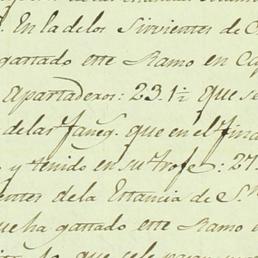 . En la de los Sirvientes de C
gastado este Ramo en Ca
Apartaderos: 23.1½ que se
de las faneg. que en el fina
y tenido en su troje: 27
entes de la Estancia de S.
que ha gastado este Ramo e